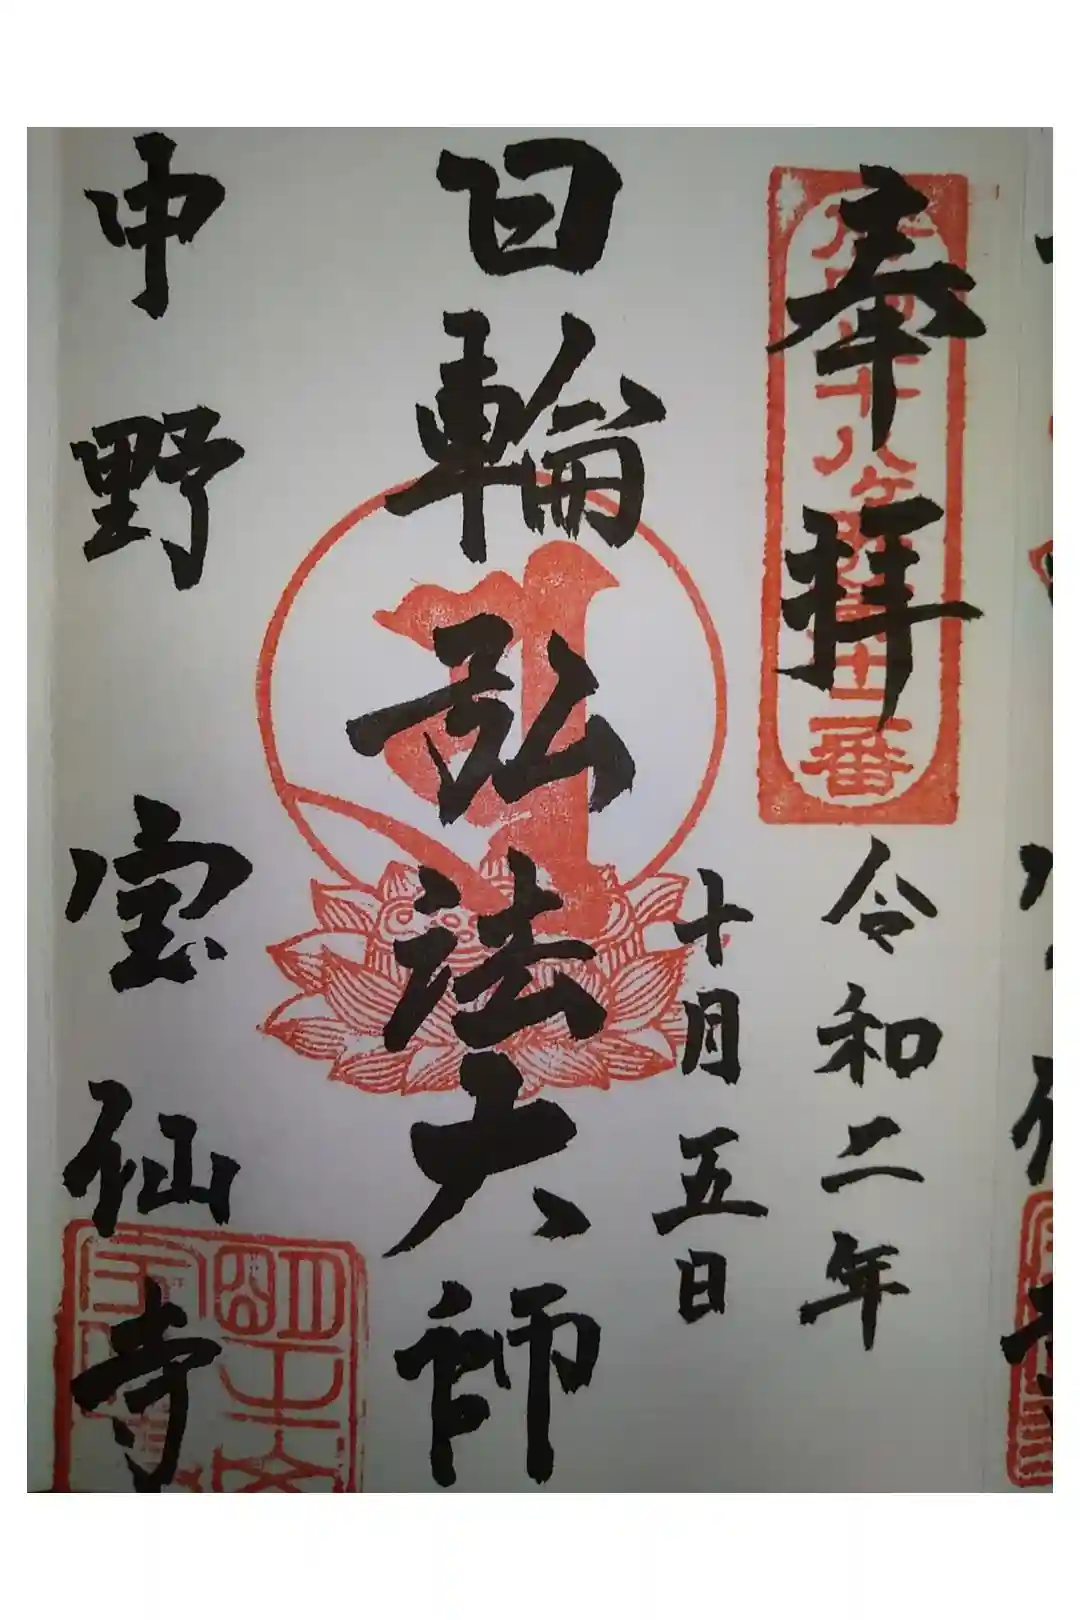 奉拝
十八ヶ所第十二番
令和二年
十月五日
日輪弘法大師
中野宝仙寺